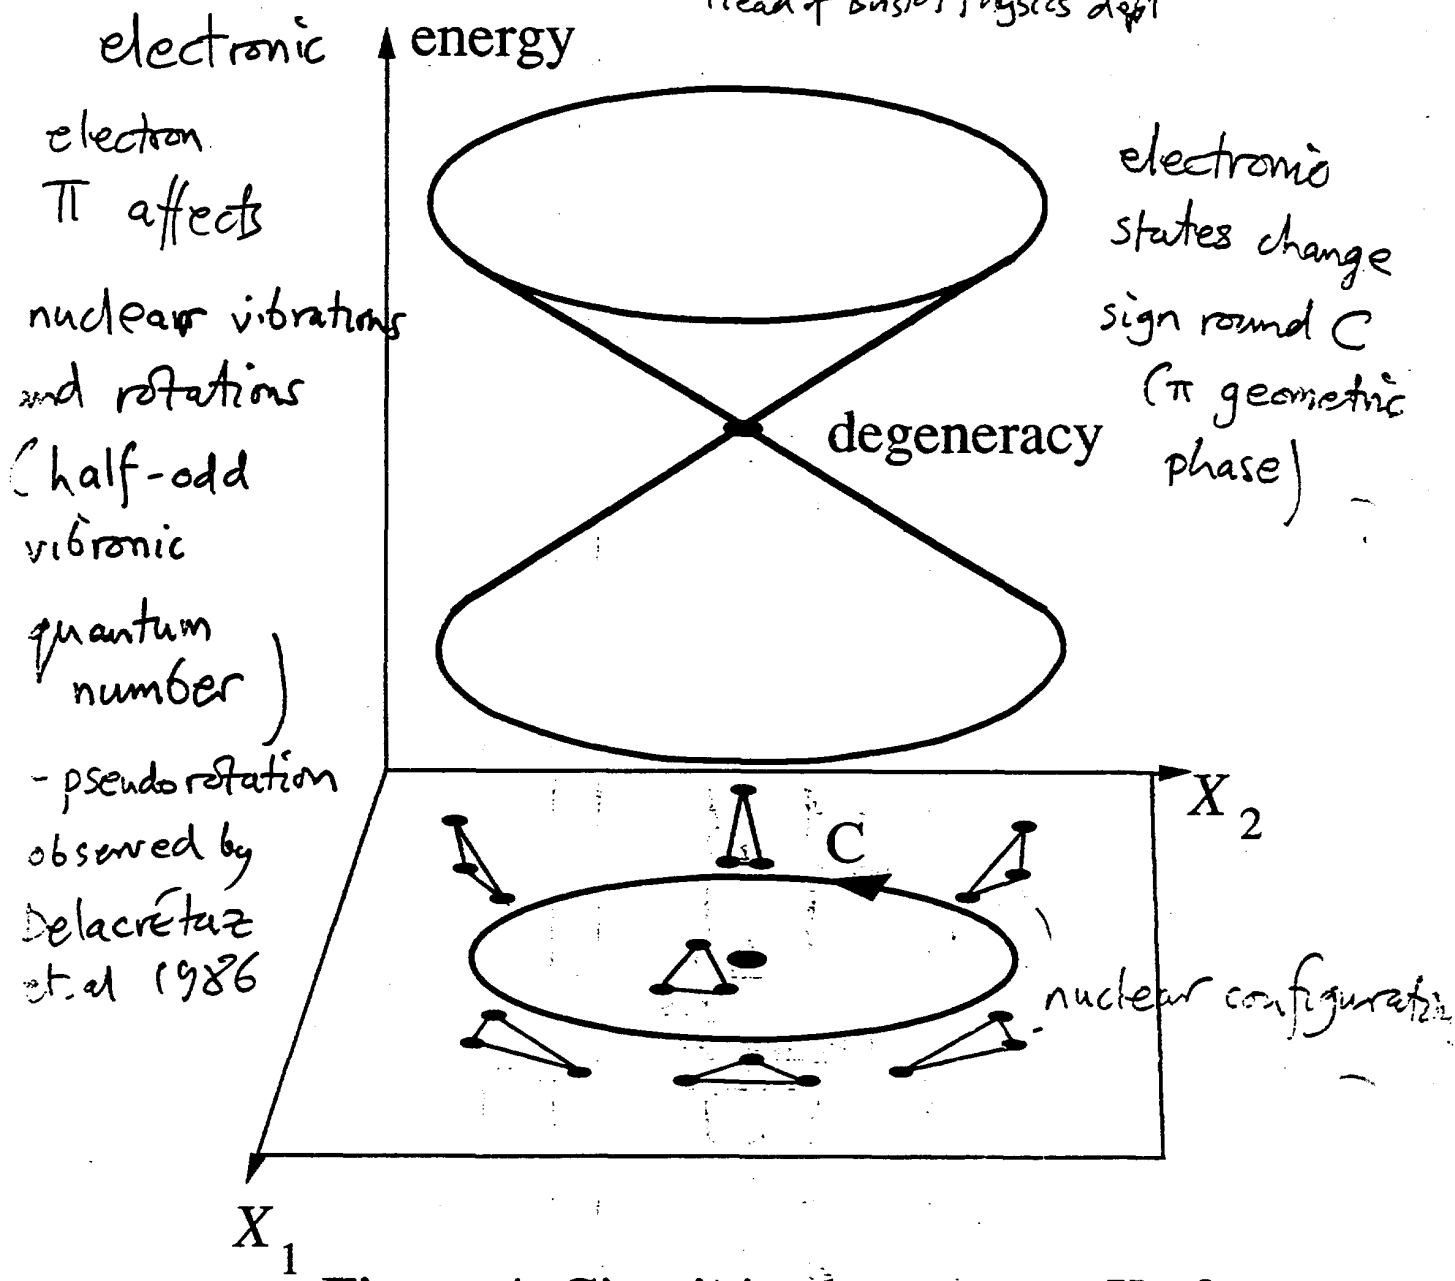 Head of Bristol Physics dept
electronic
energy
electron
π affects
nuclear vibrations
and rotations
(half-odd
vibronic
quantum
number)
- pseudorotation
observed by
Delacrétaz
et. al 1986
electronic
states change
sign round C
(π geometric
phase)
degeneracy
X2
C
nuclear configuration
X1